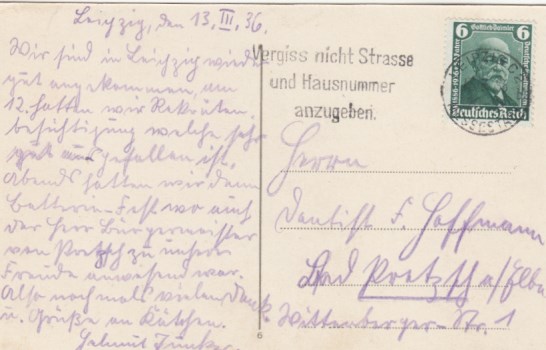 Leipzig, den 13. III. 36.
Wir sind in Leipzig wieder
gut angekommen, am
12. hatten wir Rekruten
besichtigung welche sehr
gut ausgefallen ist.
Abends hatten wir dann
Batterie-Fest wo auch
der Herr Bürgermeister
von Pretzsch zu unserer
Freude anwesend war.
Also nochmals vielen Dank
u. Grüße an Kätchen.
Helmut
Vergiss nicht Strasse
und Hausnummer
anzugeben.
6 Gottlieb Daimler 6
Deutsches Reich
Herrn
Dentist F. Hoffmann
Bad Pretzsch a/Elbe
Wittenberger-Str. 1
6